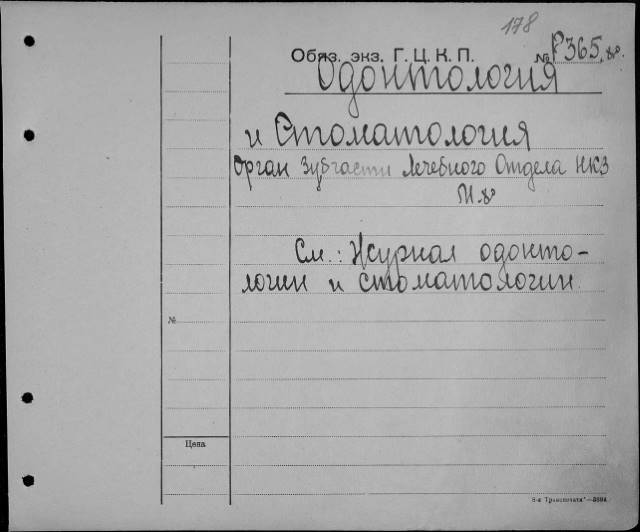 178
Обяз. экз. Г. Ц. К. П. № Р365.
Одонтология
и Стоматология
Орган Зубчасти Лечебного Отдела НКЗ
М.
См.: Журнал одонто-
логии и стоматологии.
№
Цена